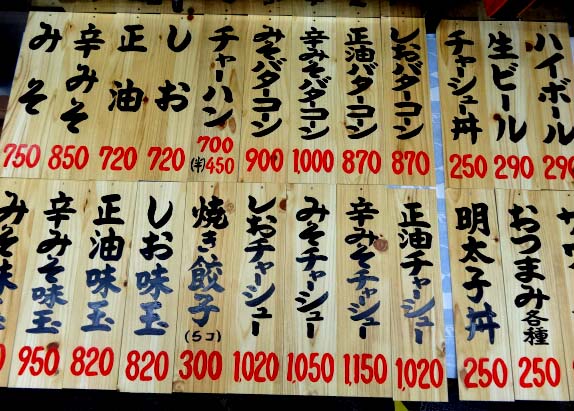 みそ 750
辛みそ 850
正油 720
しお 720
チャーハン 700 (半)450
みそバターコーン 900
辛みそバターコーン 1,000
正油バターコーン 870
しおバターコーン 870
チャーシュー丼 250
生ビール 290
ハイボール 290
みそ味
辛みそ味玉 950
正油味玉 820
しお味玉 820
焼き餃子(5コ) 300
しおチャーシュー 1,020
みそチャーシュー 1,050
辛みそチャーシュー 1,150
正油チャーシュー 1,020
明太子丼 250
おつまみ各種 250